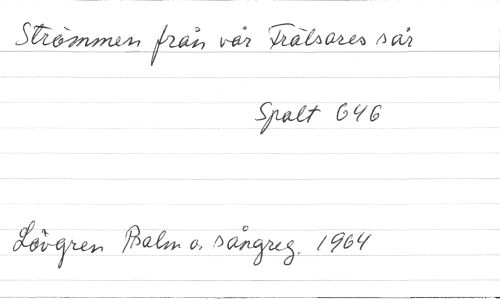 Strömmen från vår Frälsares sår
Spalt 646
Lövgren Psalm o. sångreg. 1964